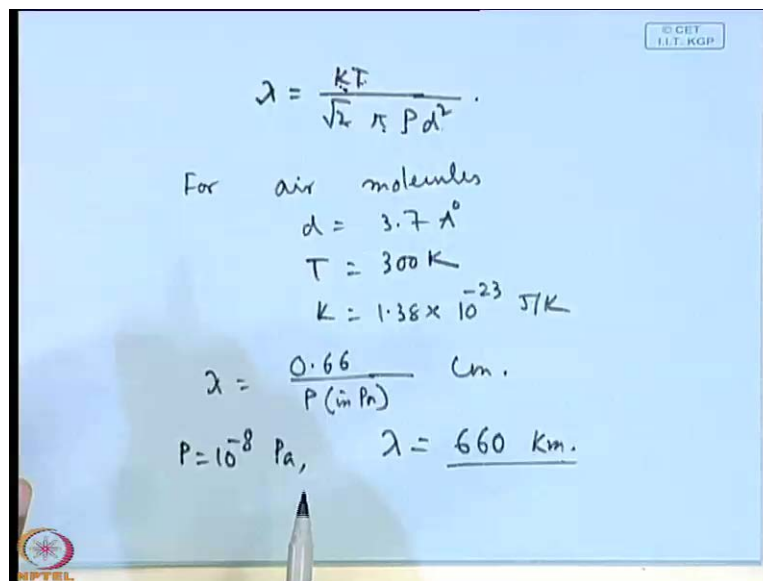 © CET
I.I.T. KGP
λ = KT / √2 π P d² .
For air molecules
d = 3.7 A°
T = 300 K
K = 1.38 × 10⁻²³ J/K
λ = 0.66 / P (in Pa) Cm.
P = 10⁻⁸ Pa, λ = 660 Km.
NPTEL